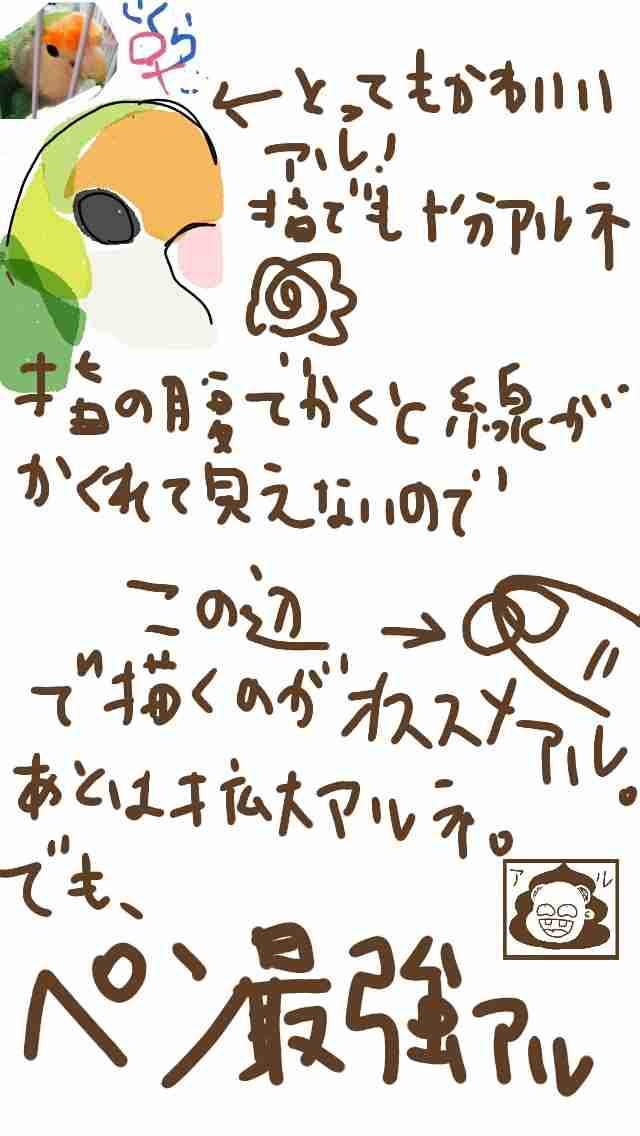 さくら
←とってもかわいい
アル!
指でも十分アルネ
指の腹でかくと線が
かくれて見えないので
この辺→
で描くのがオススメアル。
あとは拡大アルネ。
でも、
アル
ペン最強アル